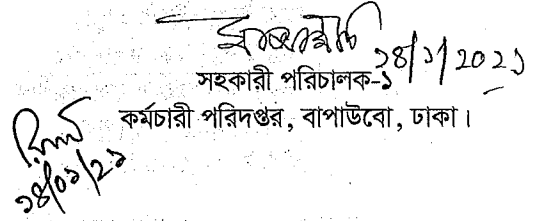 ১৪/১/2021
সহকারী পরিচালক-১
কর্মচারী পরিদপ্তর, বাপাউবো, ঢাকা।
১৪/০১/২১